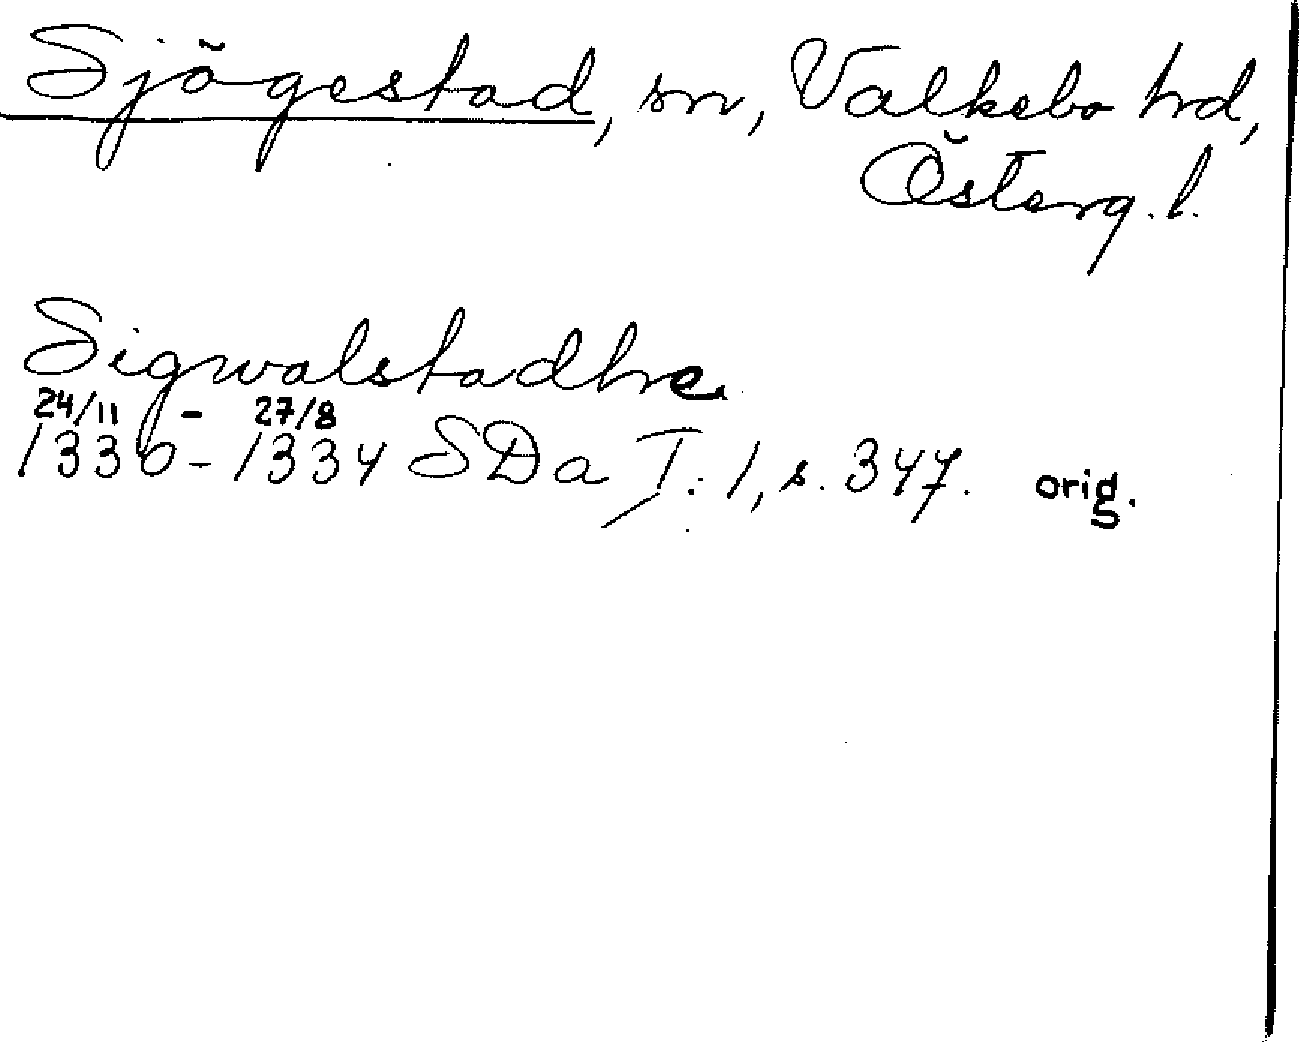 Sjögestad, sn, Valkebo hd,
Österg. l.
Sigwalstadhe
24/11 - 27/8
1330-1334 SDa I:1, s. 347. orig.